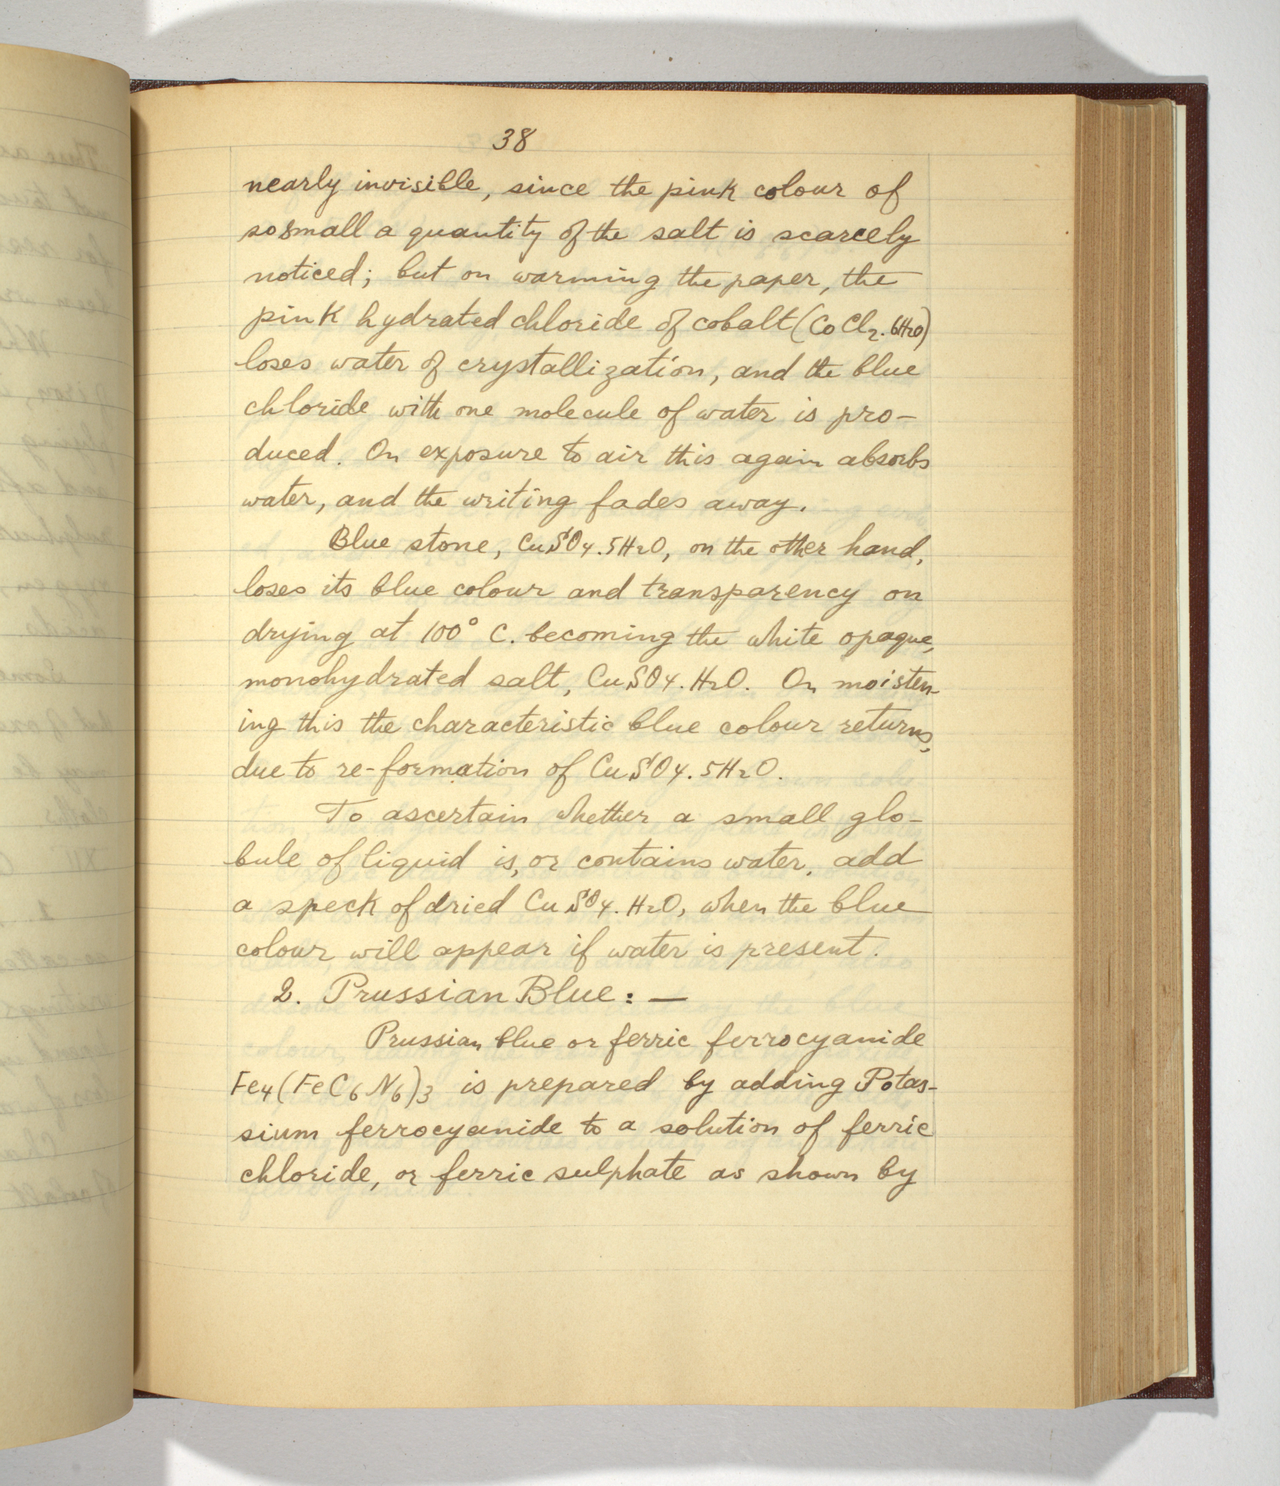 38
nearly invisible, since the pink colour of
so small a quantity of the salt is scarcely
noticed; but on warming the paper, the
pink hydrated chloride of cobalt (CoCl₂.6H₂O)
loses water of crystallization, and the blue
chloride with one molecule of water is pro-
duced. On exposure to air this again absorbs
water, and the writing fades away.
Blue stone, CuSO₄.5H₂O, on the other hand,
loses its blue colour and transparency on
drying at 100° C. becoming the white opaque,
monohydrated salt, CuSO₄.H₂O. On moisten-
ing this the characteristic blue colour returns,
due to re-formation of CuSO₄.5H₂O.
To ascertain whether a small glo-
bule of liquid is, or contains water, add
a speck of dried CuSO₄.H₂O, when the blue
colour will appear if water is present.
2. Prussian Blue: —
Prussian blue or ferric ferrocyanide
Fe₄(FeC₆N₆)₃ is prepared by adding Potas-
sium ferrocyanide to a solution of ferric
chloride, or ferric sulphate as shown by